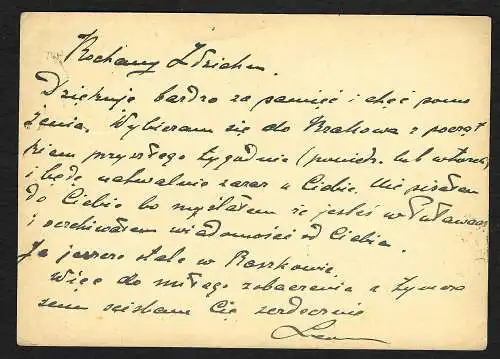 Kochany Zdzichu.
Dziękuję bardzo za pamięć i chęć pomo
żenia. Wybieram się do Krakowa z począt
kiem przyszłego tygodnia (poniedz. lub wtorek)
i będę natychmiast zaraz u Ciebie. Nie pisałem
do Ciebie bo myślałem że jesteś w Puławach
i oczekiwałem wiadomości od Ciebie.
Ja jeszcze stale w Raszkowie.
Więc do miłego zobaczenia a tymcza
sem ściskam Cię serdecznie